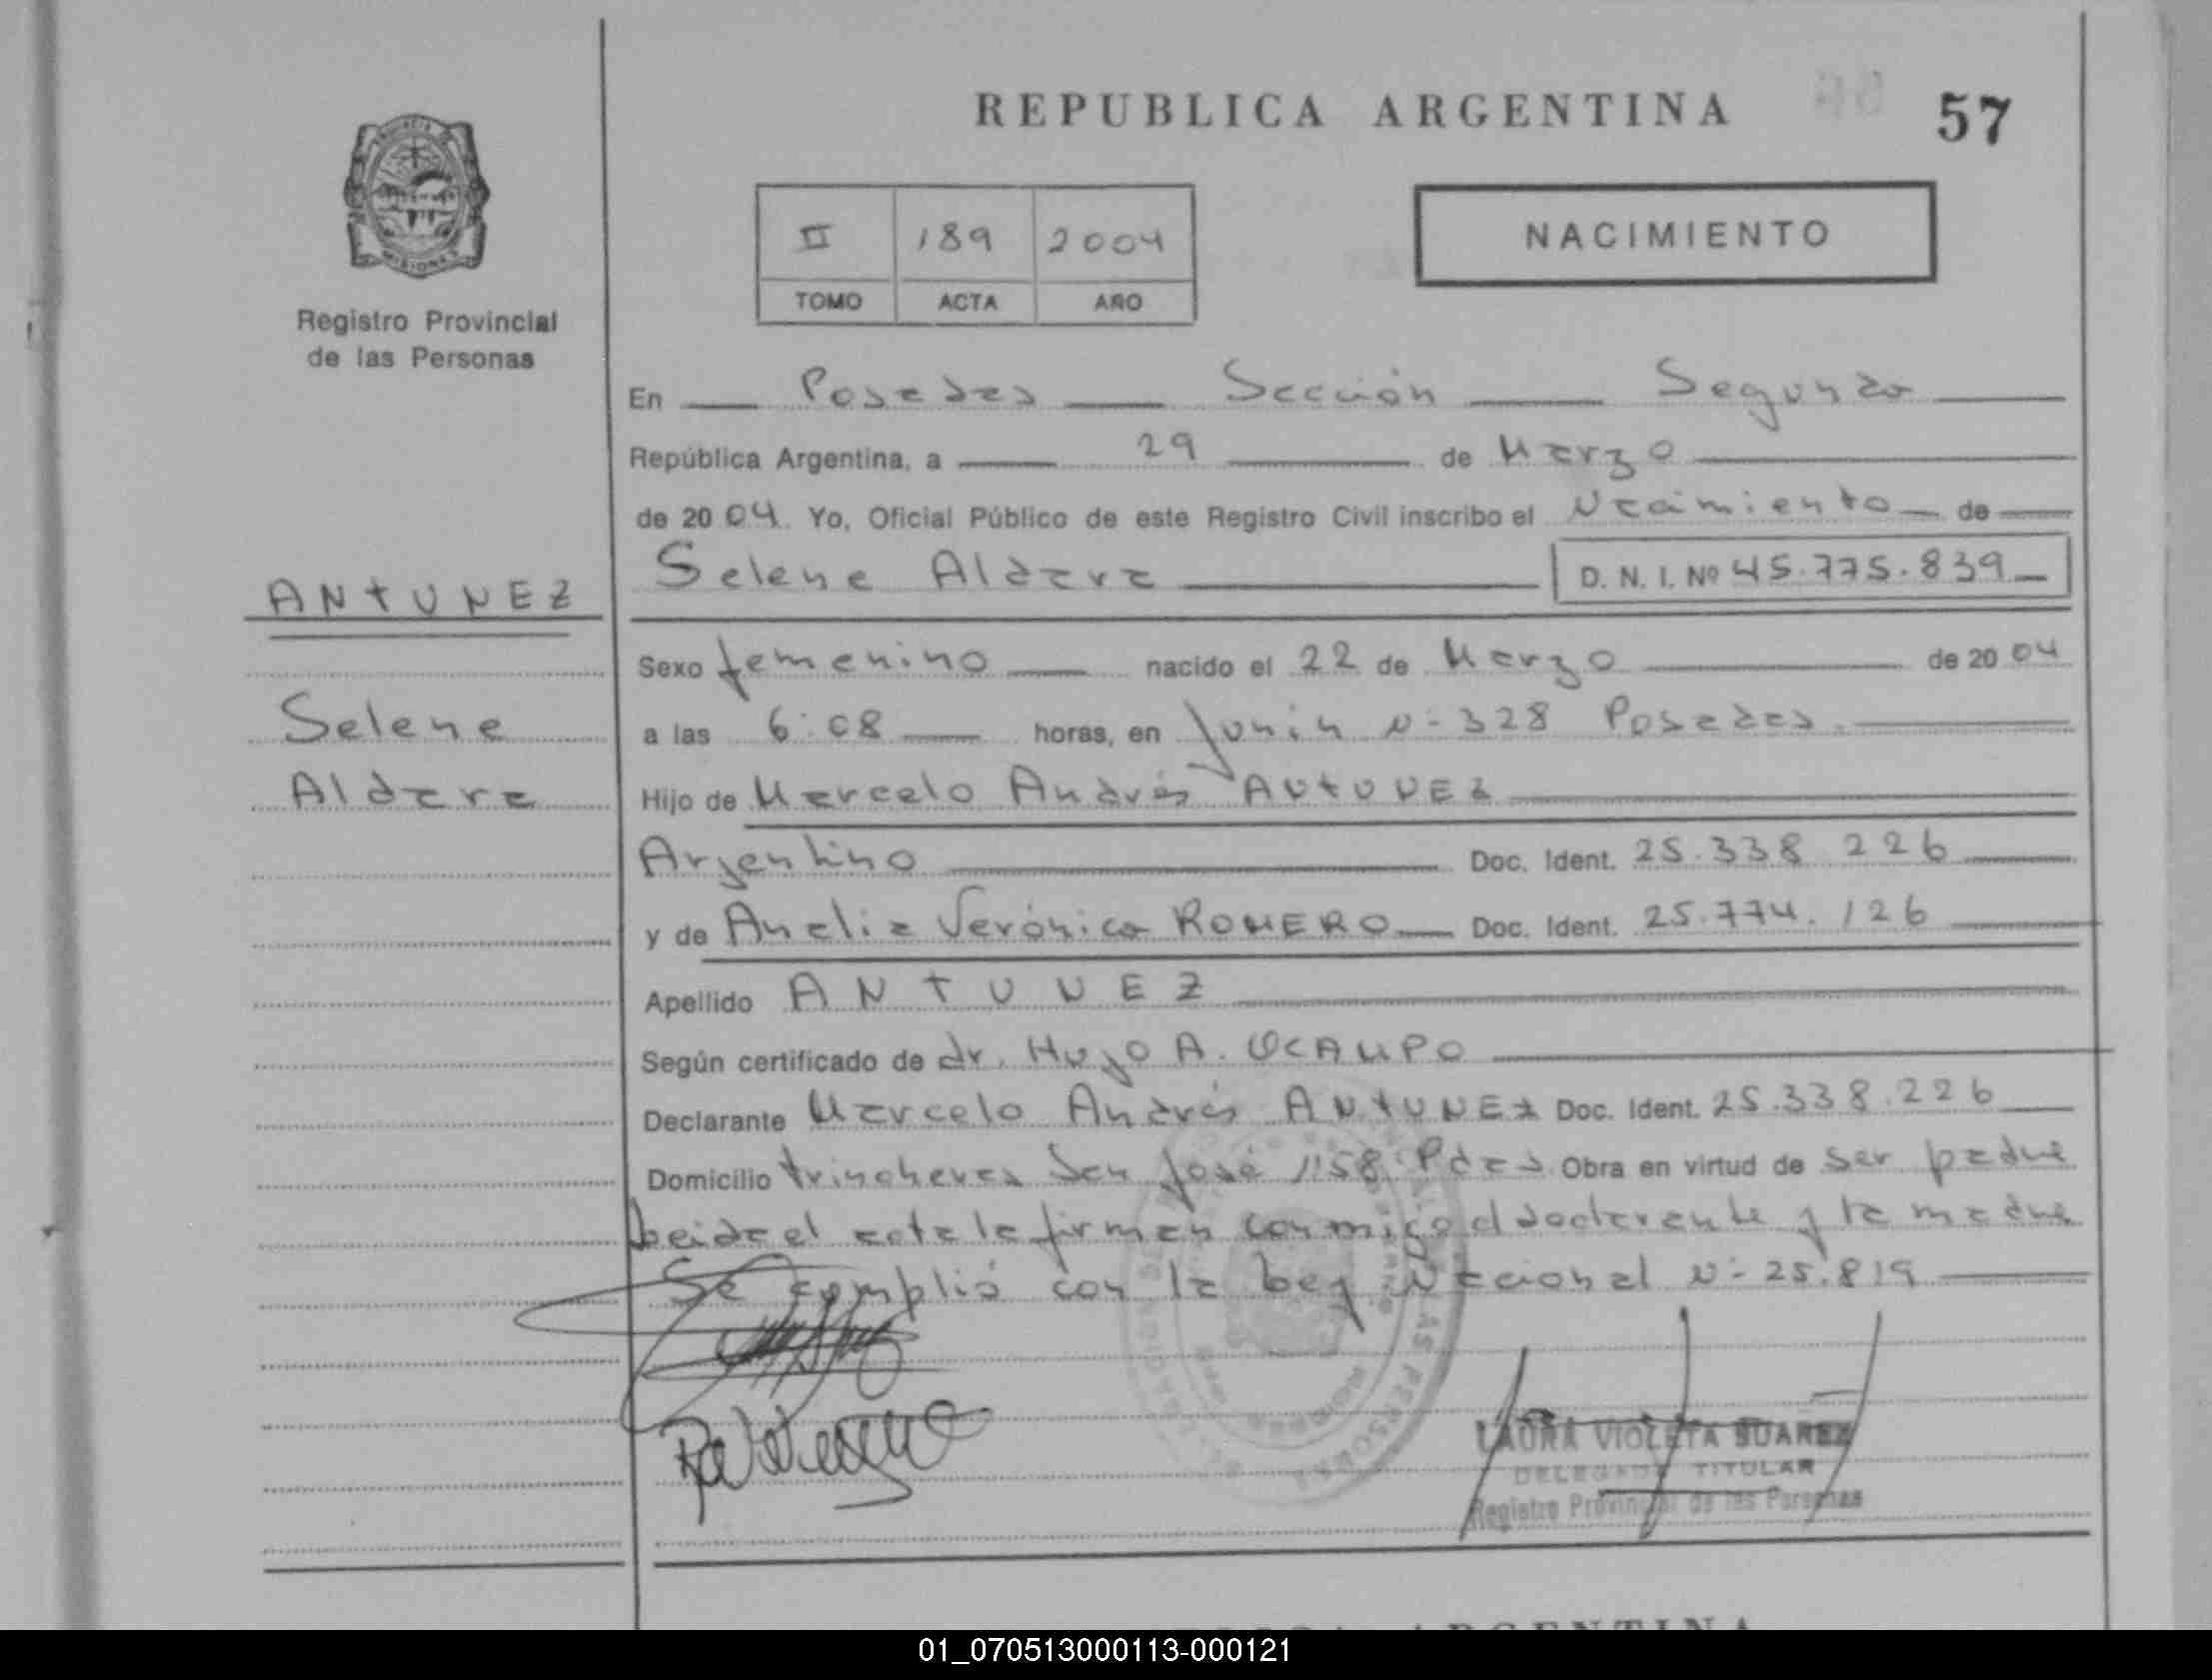 REPUBLICA ARGENTINA
57
PROVINCIA DE
MISIONES
Registro Provincial
de las Personas
II 189 2004
TOMO ACTA AÑO
NACIMIENTO
En Posadas Sección Segunda
República Argentina, a 29 de Marzo
de 2004. Yo, Oficial Público de este Registro Civil inscribo el Nacimiento de
Selene Aldara D. N. I. Nº 45.775.839
ANTUNEZ
Selene
Aldara
Sexo femenino nacido el 22 de Marzo de 2004
a las 6:08 horas, en Junín Nº 328 Posadas.
Hijo de Marcelo Andrés ANTUNEZ
Argentino Doc. Ident. 25.338.226
y de Analia Verónica ROMERO Doc. Ident. 25.774.126
Apellido ANTUNEZ
Según certificado de dr. Hugo A. OCAMPO
Declarante Marcelo Andrés ANTUNEZ Doc. Ident. 25.338.226
Domicilio trincheras San José 1158 Pdas Obra en virtud de ser padre
Leida el acta la firman conmigo el declarante y la madre
Se cumplió con la Ley Nacional Nº 25.819
LAURA VIOLETA SUAREZ
DELEGADA TITULAR
Registro Provincial de las Personas
01_070513000113-000121